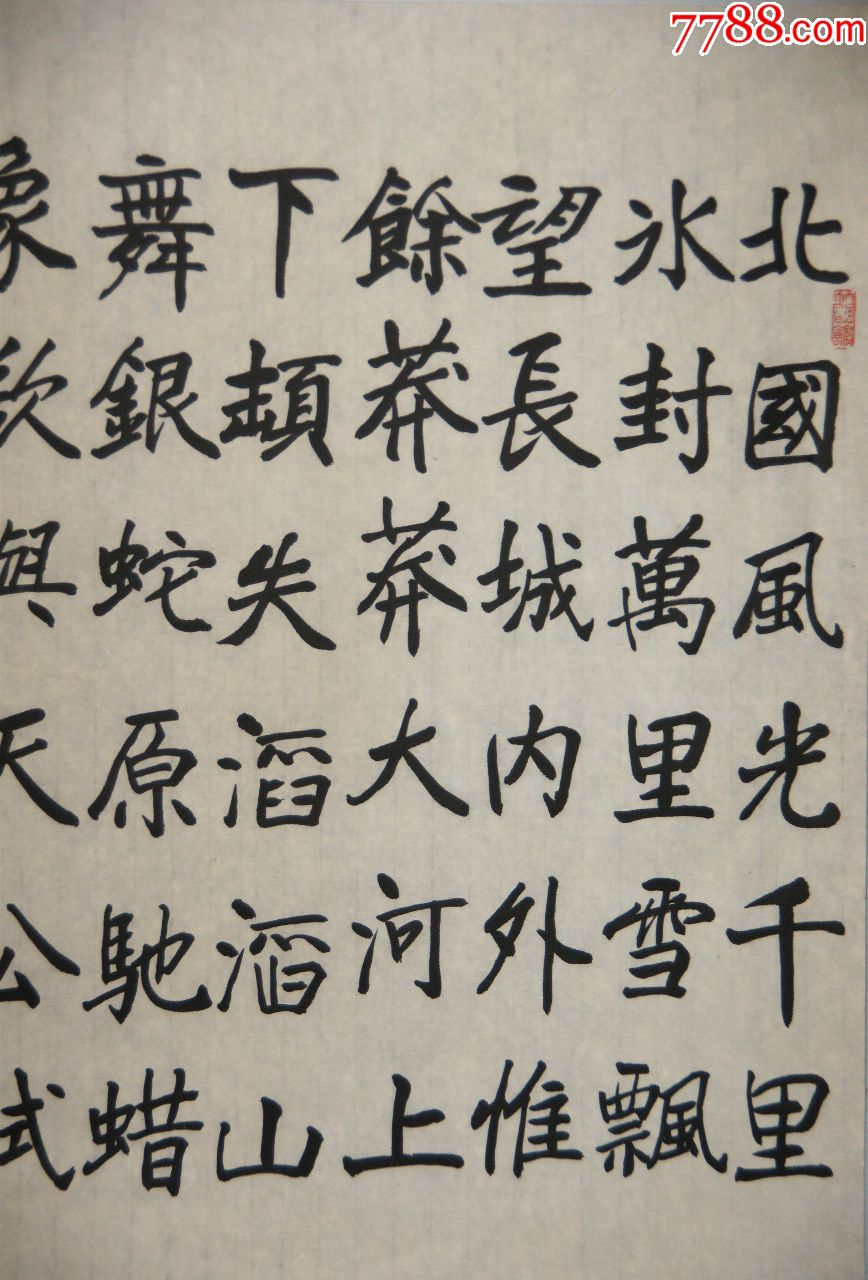 7788.com
北國風光千里
冰封萬里雪飄
望長城内外惟
餘莽莽大河上
下頓失滔滔山
舞銀蛇原馳蜡
象欲與天公試